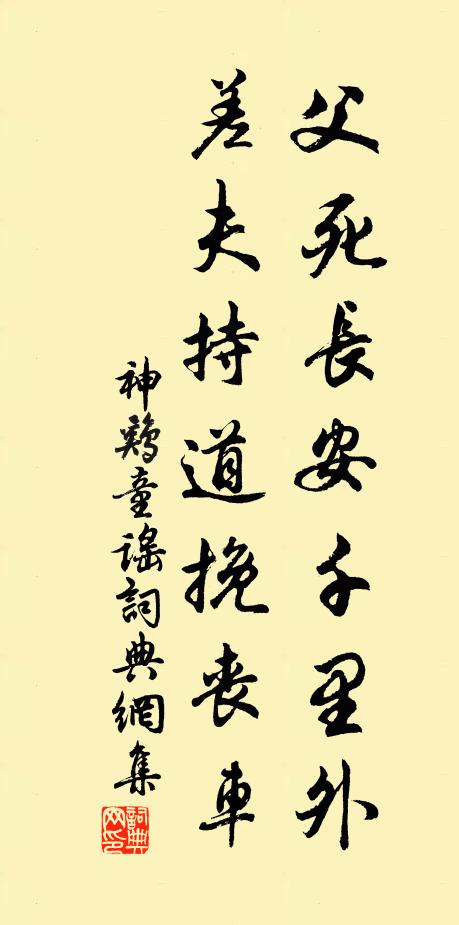 父死長安千里外
差夫持道挽喪車
神鷄童謠詞典網集
詞典网印